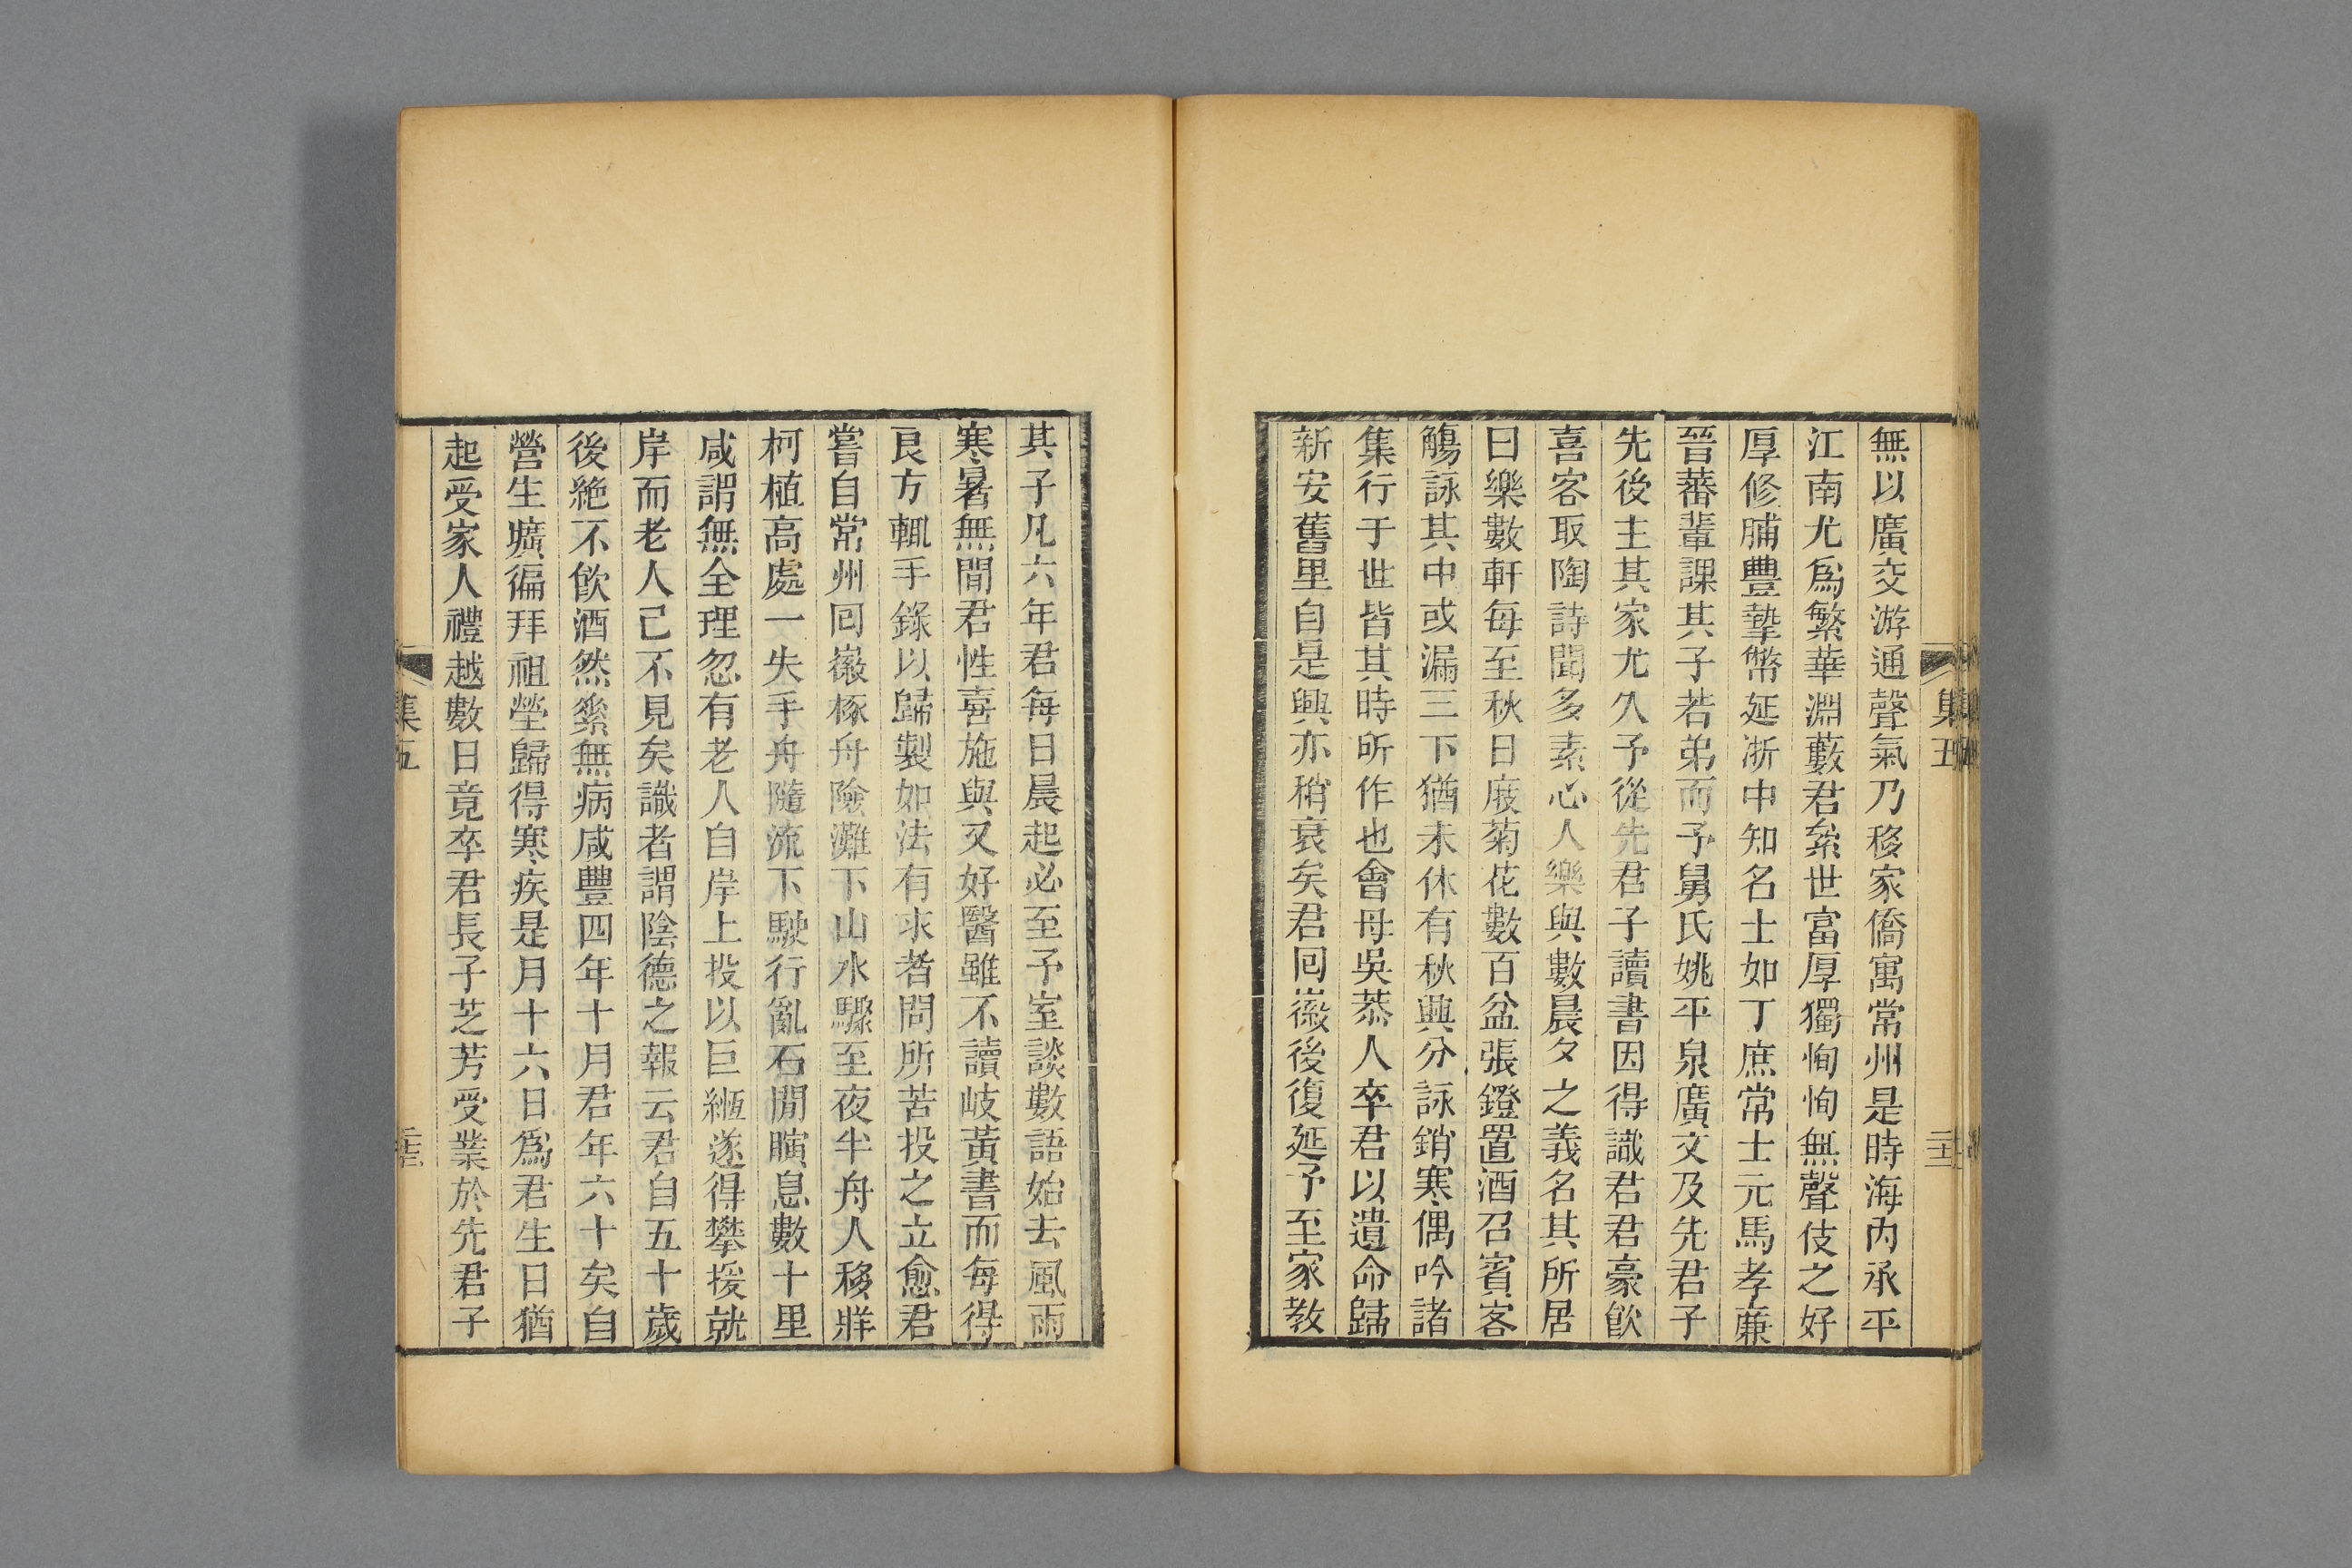 無以廣交游通聲氣乃移家僑寓常州是時海內承平
江南尤爲繁華淵藪君絫世富厚獨恂恂無聲伎之好
厚修脯豐摯幣延浙中知名士如丁庶常士元馬孝廉
晉蕃輩課其子若弟而予舅氏姚平泉廣文及先君子
先後主其家尤久予從先君子讀書因得識君君豪飮
喜客取陶詩聞多素心人樂與數晨夕之義名其所居
曰樂數軒每至秋日庋菊花數百盆張鐙置酒召賓客
觴詠其中或漏三下猶未休有秋興分詠銷寒偶吟諸
集行于世皆其時所作也會母吳恭人卒君以遺命歸
新安舊里自是興亦稍衰矣君回徽後復延予至家教
集五
其子凡六年君每日晨起必至予室談數語始去風雨
寒暑無間君性喜施與又好醫雖不讀岐黃書而每得
良方輒手錄以歸製如法有求者問所苦投之立愈君
嘗自常州回徽𣔻舟險灘下山水驟至夜半舟人移牂
柯植高處一失手舟隨流下駛行亂石閒瞚息數十里
咸謂無全理忽有老人自岸上投以巨緪遂得攀援就
岸而老人已不見矣識者謂陰德之報云君自五十歲
後絕不飮酒然絫無病咸豐四年十月君年六十矣自
營生壙徧拜祖塋歸得寒疾是月十六日爲君生日猶
起受家人禮越數日竟卒君長子芝芳受業於先君子
集五